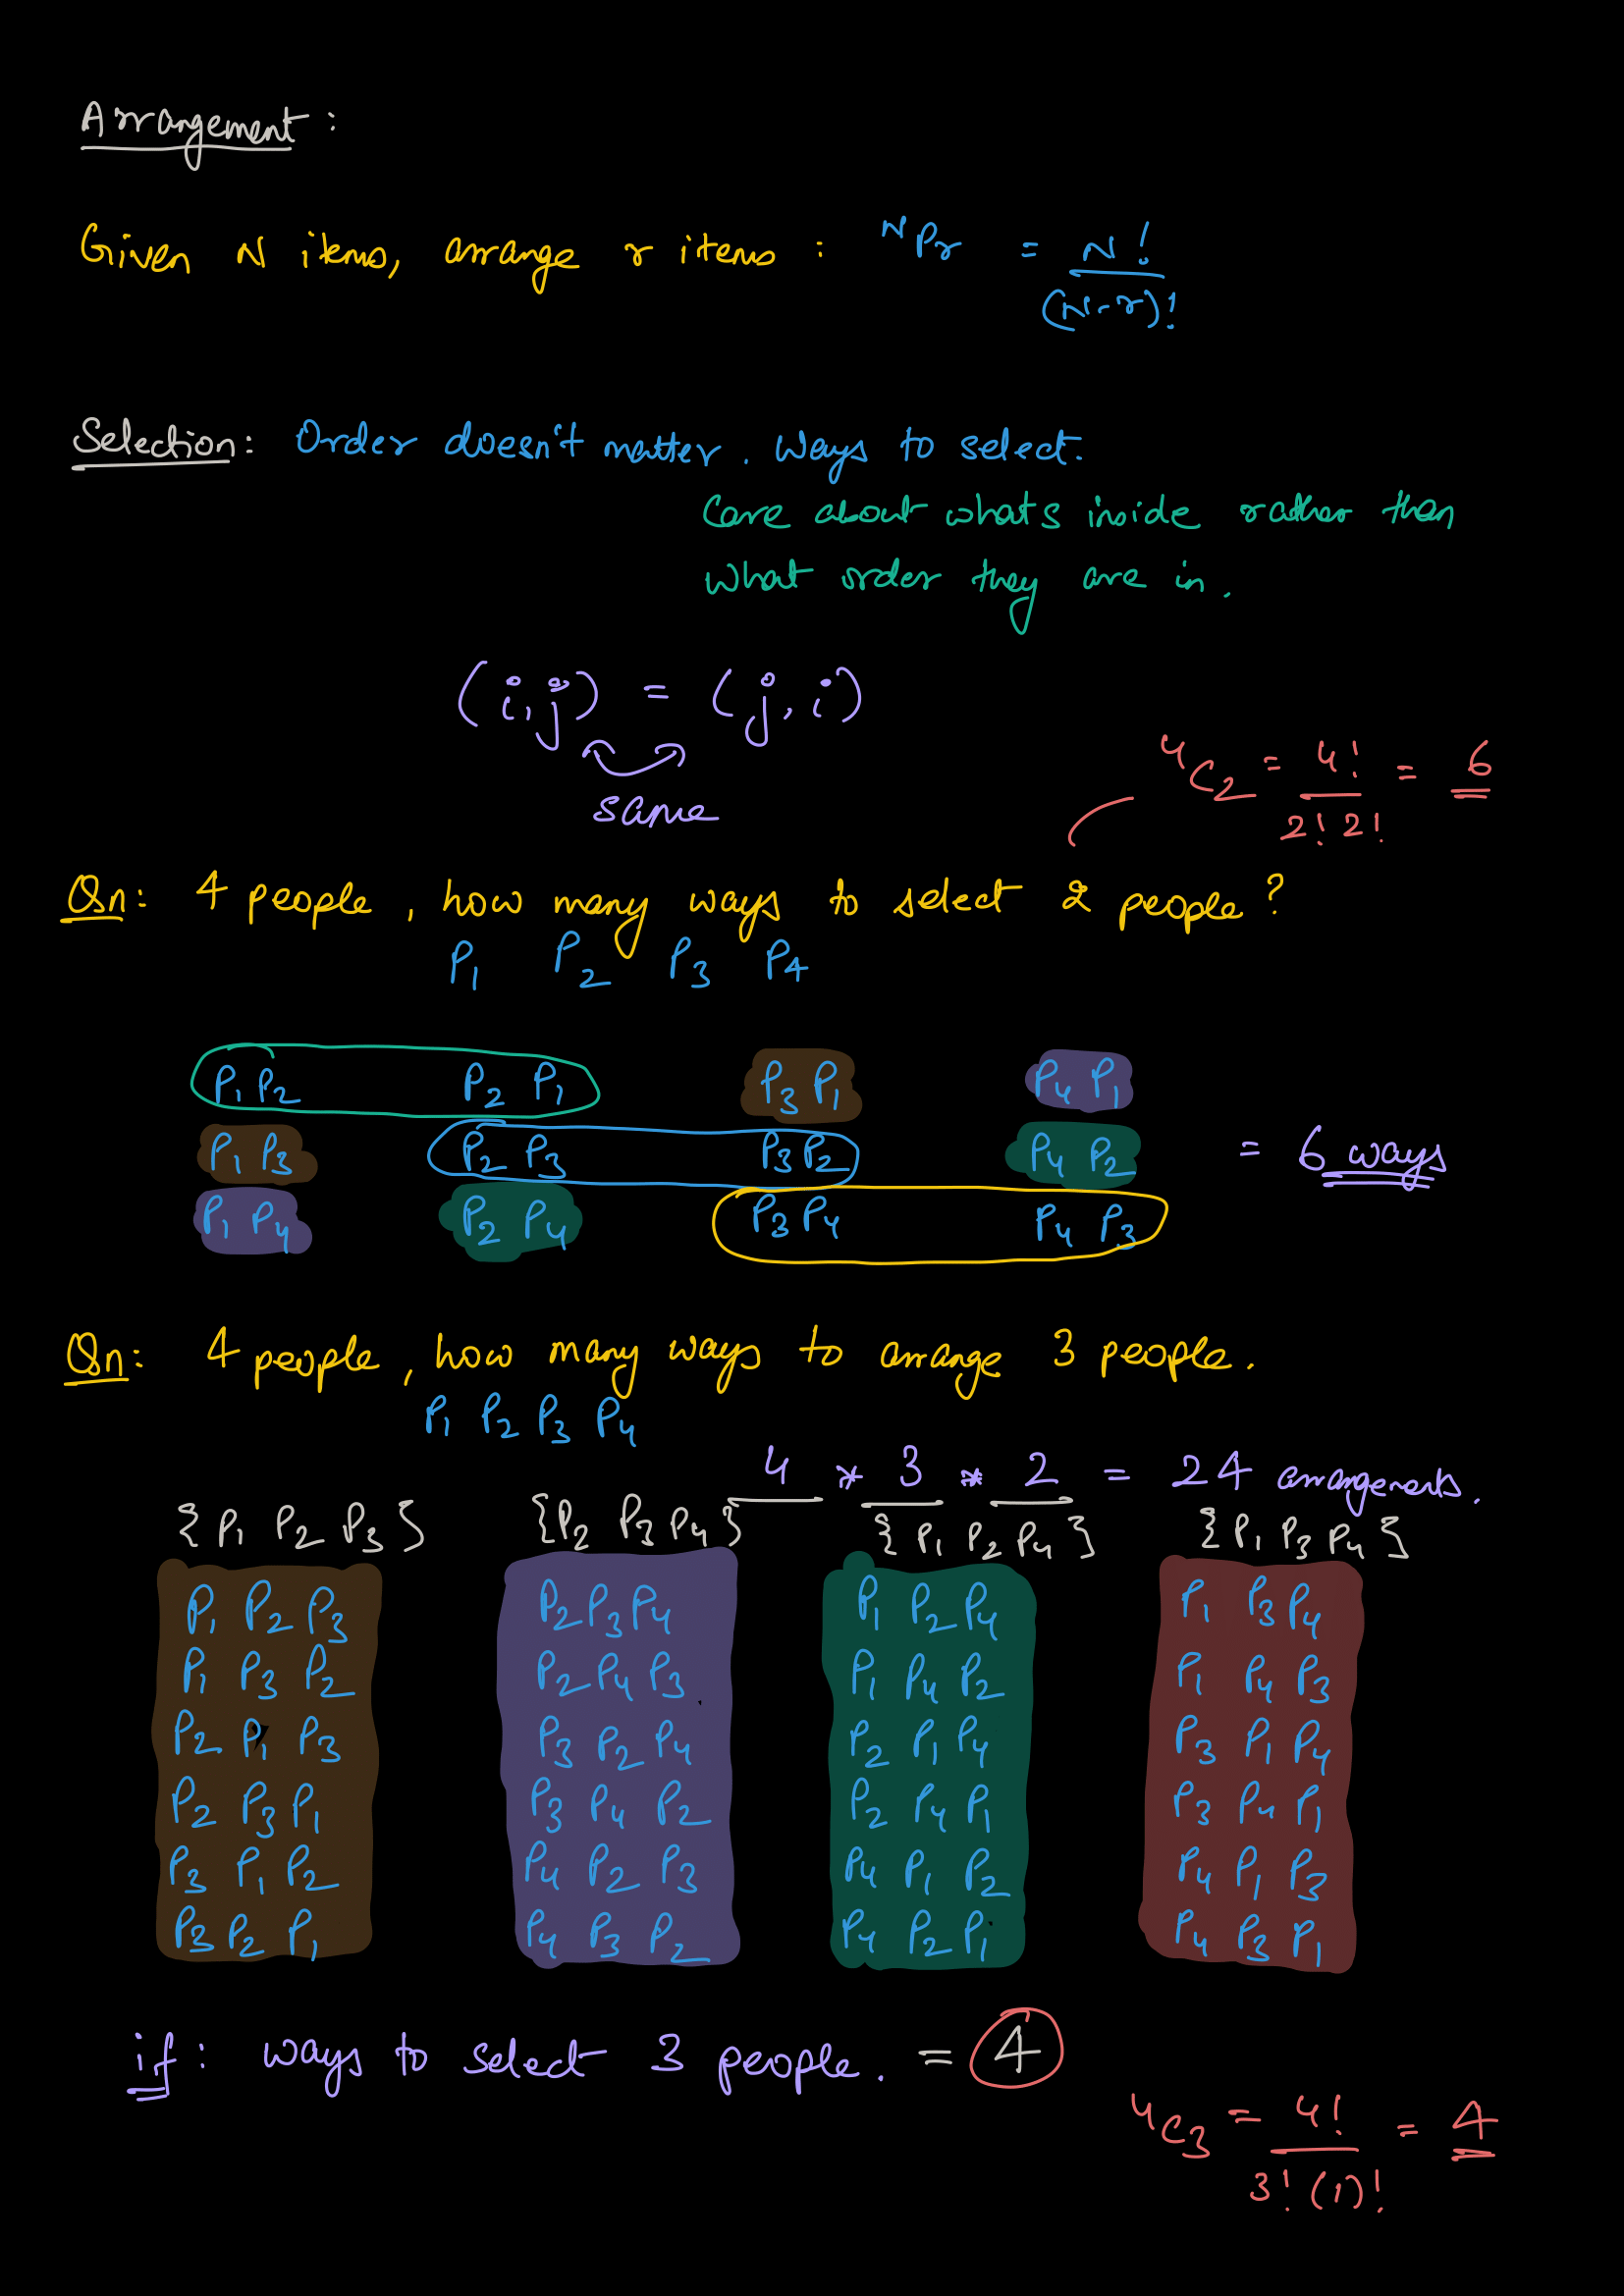 Arrangement :
Given N items, arrange r items : ᴺPr = N! / (N-r)!
Selection: Order doesn't matter. Ways to select.
Care about whats inside rather than
what order they are in.
(i,j) = (j,i)
same
⁴C₂ = 4! / 2! 2! = 6
Qn: 4 people, how many ways to select 2 people?
P₁ P₂ P₃ P₄
P₁ P₂ P₂ P₁ P₃ P₁ P₄ P₁
P₁ P₃ P₂ P₃ P₃ P₂ P₄ P₂ = 6 ways
P₁ P₄ P₂ P₄ P₃ P₄ P₄ P₃
Qn: 4 people, how many ways to arrange 3 people.
P₁ P₂ P₃ P₄
4 * 3 * 2 = 24 arrangements.
{P₁ P₂ P₃} {P₂ P₃ P₄} {P₁ P₂ P₄} {P₁ P₃ P₄}
P₁ P₂ P₃ P₂ P₃ P₄ P₁ P₂ P₄ P₁ P₃ P₄
P₁ P₃ P₂ P₂ P₄ P₃ P₁ P₄ P₂ P₁ P₄ P₃
P₂ P₁ P₃ P₃ P₂ P₄ P₂ P₁ P₄ P₃ P₁ P₄
P₂ P₃ P₁ P₃ P₄ P₂ P₂ P₄ P₁ P₃ P₄ P₁
P₃ P₁ P₂ P₄ P₂ P₃ P₄ P₁ P₂ P₄ P₁ P₃
P₃ P₂ P₁ P₄ P₃ P₂ P₄ P₂ P₁ P₄ P₃ P₁
if: ways to select 3 people. = 4
⁴C₃ = 4! / 3! (1)! = 4